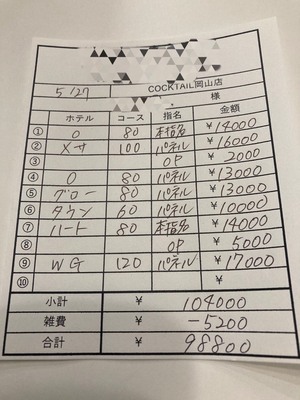 COCKTAIL岡山店
5/27 様
ホテル コース 指名 金額
① O 80 本指名 ¥14000
② メサ 100 パネル ¥16000
③ OP ¥2000
④ O 80 パネル ¥13000
⑤ グロー 80 パネル ¥13000
⑥ タウン 60 パネル ¥10000
⑦ ハート 80 本指名 ¥14000
⑧ OP ¥5000
⑨ WG 120 パネル ¥17000
⑩ ¥
小計 ¥ 104000
雑費 ¥ -5200
合計 ¥ 98800